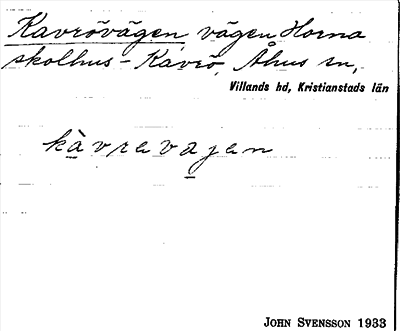 Kavrövägen, vägen Horna
skolhus - Kavrö, Åhus sn,
Villands hd, Kristianstads län
kàvravajen
JOHN SVENSSON 1933